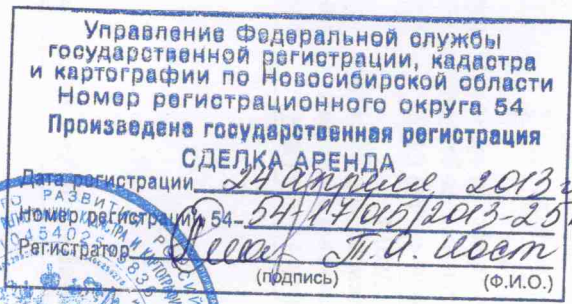 Управление Федеральной службы
государственной регистрации, кадастра
и картографии по Новосибирской области
Номер регистрационного округа 54
Произведена государственная регистрация
СДЕЛКА АРЕНДА
Дата регистрации 24 апреля 2013 г
Номер регистрации 54- 54-17/015/2013-25
Регистратор Т.А.
(подпись) (Ф.И.О.)
РАЗВИТИ